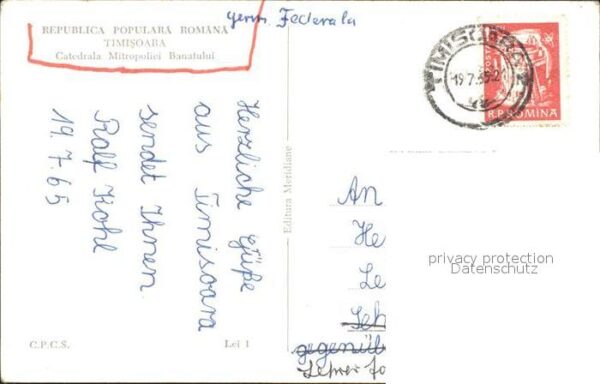 germ. Federala
REPUBLICA POPULARĂ ROMÂNĂ
TIMIȘOARA
Catedrala Mitropoliei Banatului
Herzliche Grüße
aus Timisoara
sendet Ihnen
Ralf Kohl
19.7.65
Editura Meridiane
C.P.C.S.
Lei 1
TIMISOARA
19.7.65
R.P.ROMINA
An
He
Le
gegenüb
Lehrer
privacy protection
Datenschutz